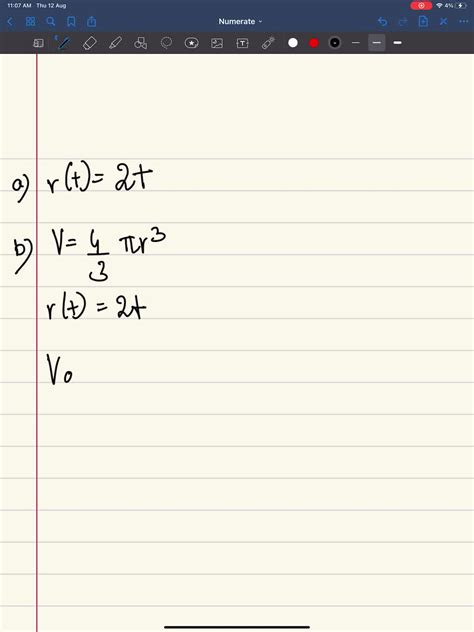 11:07 AM Thu 12 Aug
4%
Numerate
a) r(t) = 2t
b) V = 4/3 πr³
r(t) = 2t
Vo